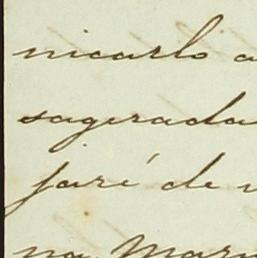 nicarlo a
sagerada
jaré de
na Mar